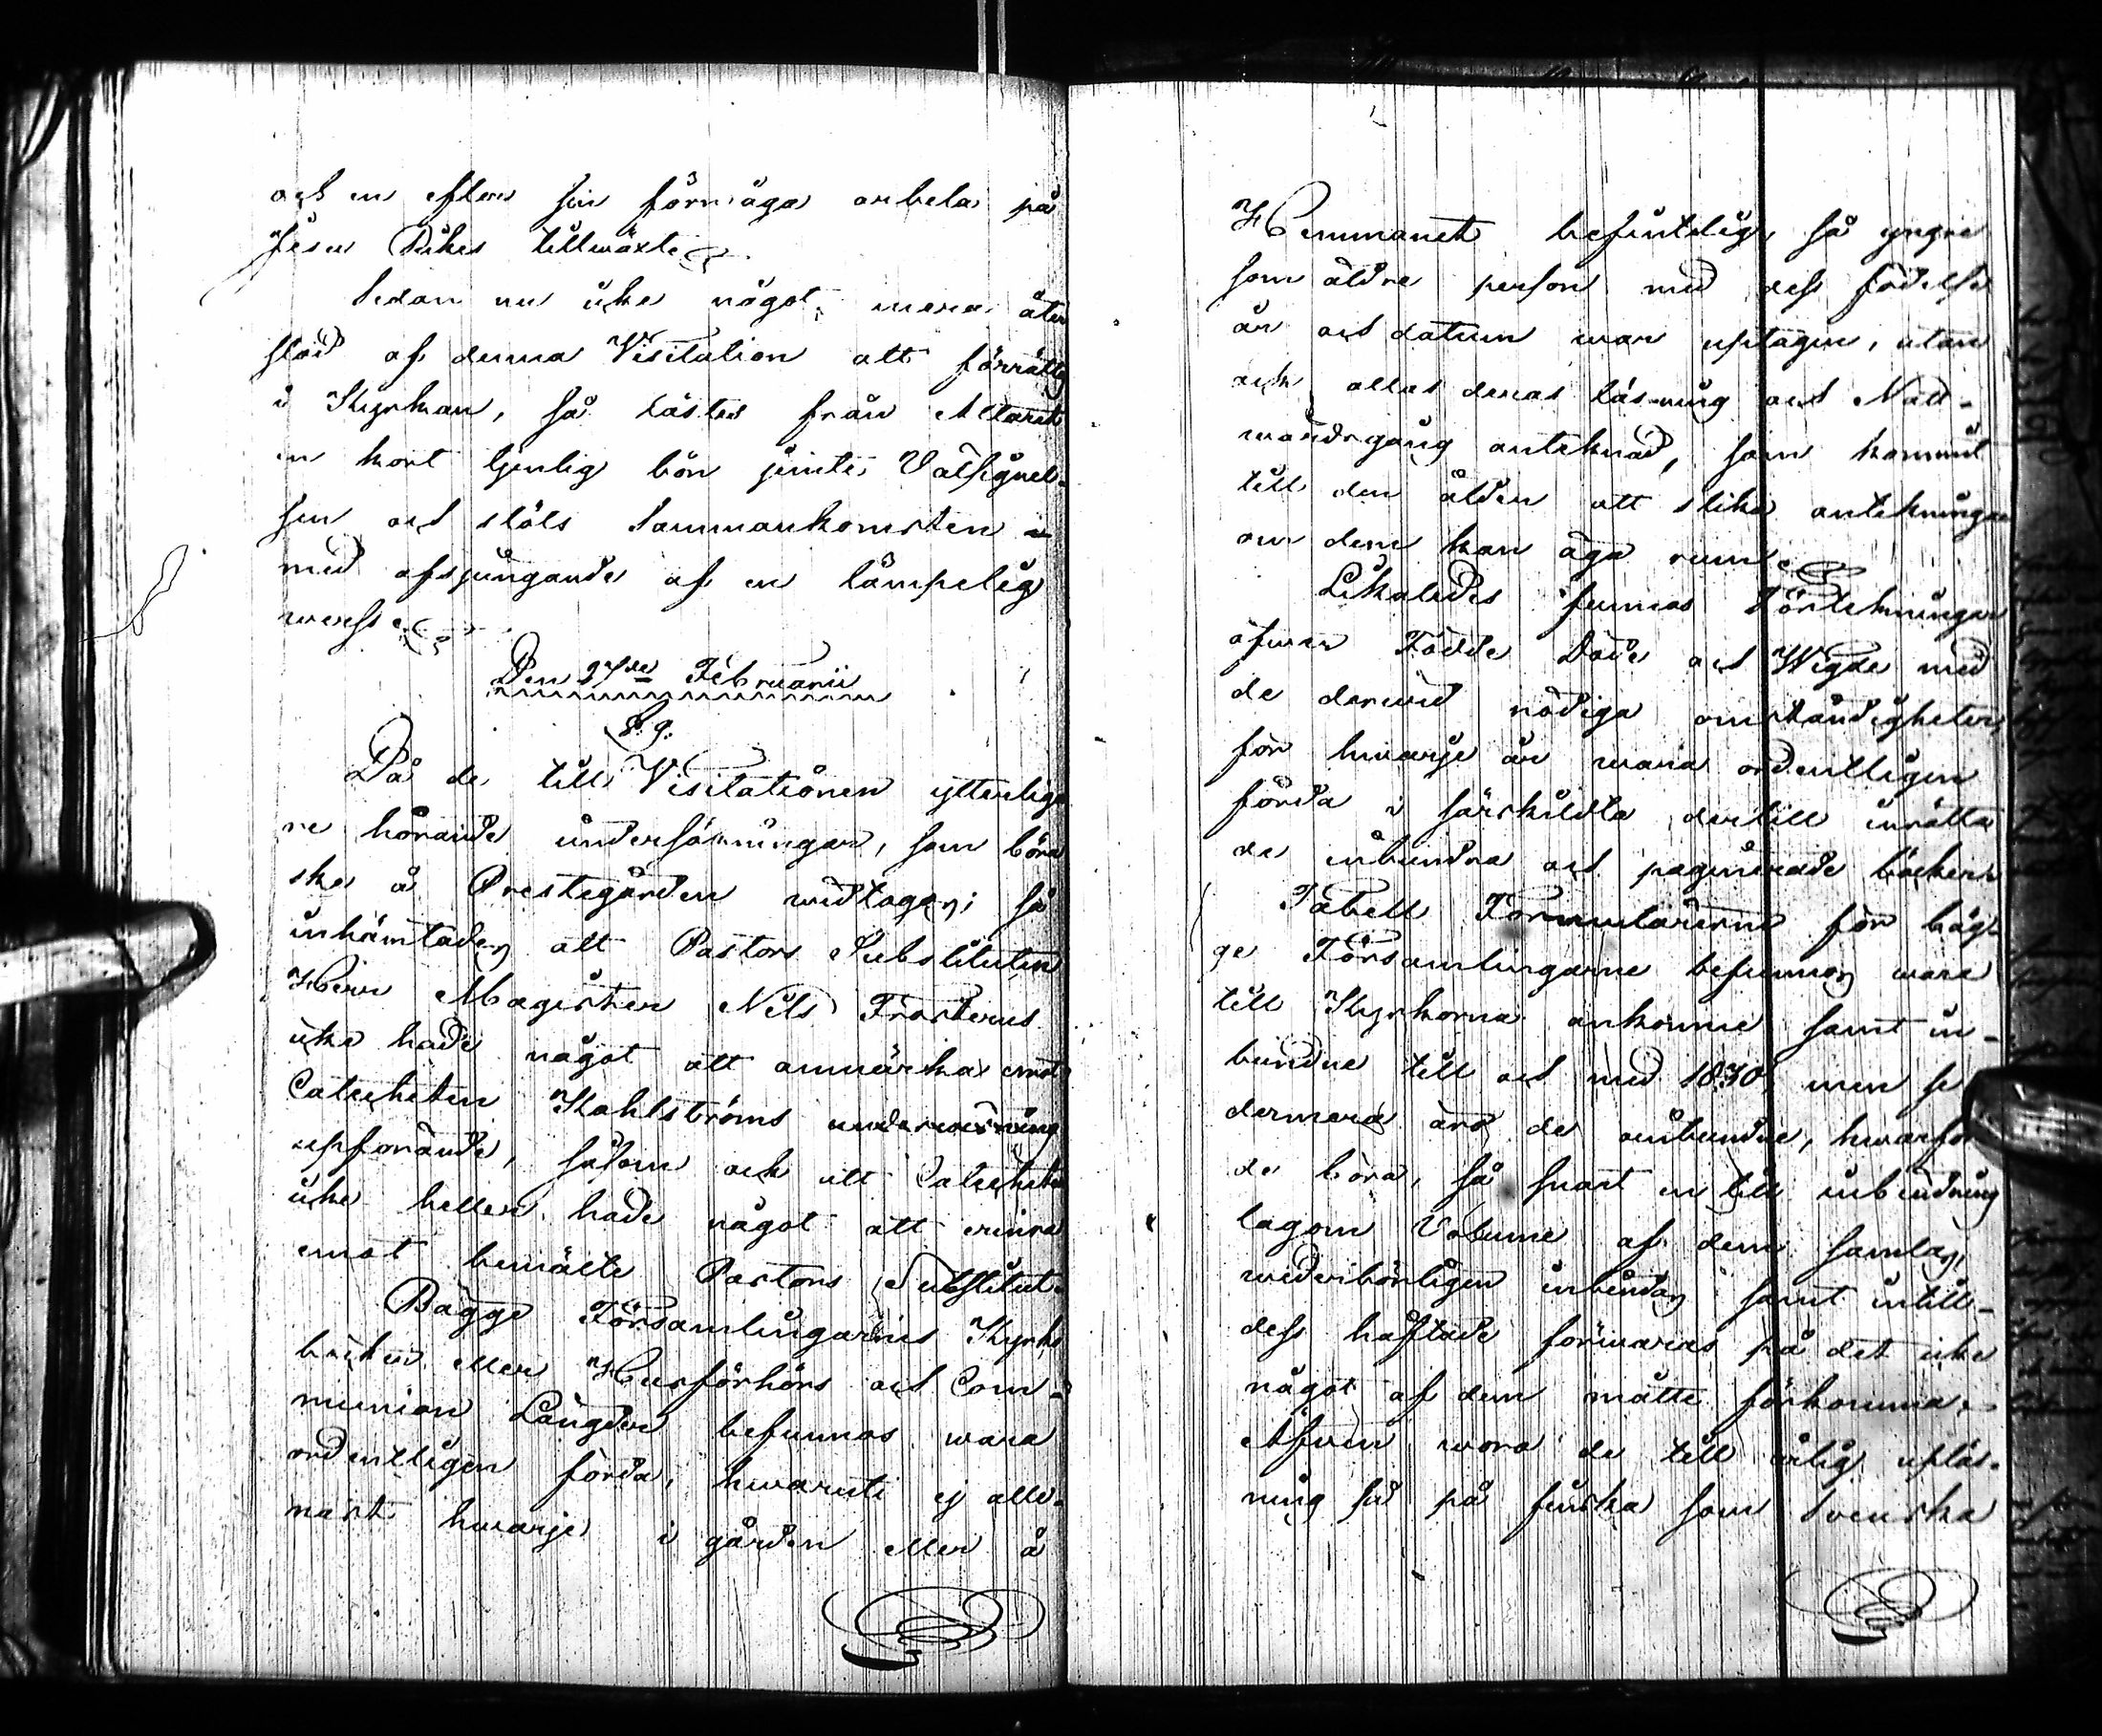 och en efter sin förmåga arbeta på
Jesu Rikes tillwäxte.
Sedan nu icke något mera åter
stod af denna Visitation att förrättas
i Kyrkan, så lästes från Altaret
en kort tjenlig bön jemte Välsignel-
sen och slöts Sammankomsten
med afsjungande af en lämpelig
werse.
Den 27de Februarii
§. 9.
Då de till Visitationen ytterliga-
re hörande undersökningar, som böra
ske å Prestegården widtogos; så
inhämtades att Pastors Substituten
Herr Magister Nils Frosterus
icke hade något att anmärka emot
Catecheten Kahlströms underwisning
upförande, såsom och att Catecheten
icke heller hade något att erinra
emot bemälte Pastors Substitut.
Bägge Församlingarnes Kyrko
böcker eller Husförhörs och Com-
munion Längder befunnos wara
ordentligen förda, hwaruti ej alle-
nast hwarje i gården eller å
Hemmanet befintelig, så yngre
som äldre person med dess födelse
år och datum war uptagen, utan
och allas deras läsning och Natt-
wardsgång anteknad, som kommit
till den ålder att slika antekningar
om dem kan äga rum.
Likaledes funnos Förtekningar
öfwer Födde Döde och Wigde med
de derwid nödiga omständigheter
för hwarje år wara ordentligen
förda i särskildta dertill inrätta
de inbundna och paginerade böcker.
Tabell Formulairerne för bäg-
ge Församlingarne befunnos wara
till Kyrkorna ankomne samt in-
bundne till och med 1830, men se
dermera äro de oinbundne, hwarföre
de böra, så snart en till inbindning
lagom Volume af dem samlas,
wederbörligen inbindas samt intill-
dess häftade förwaras på det icke
något af dem måtte förkomma.
Äfwen wora de till årlig upläs-
ning så på finska som Svenska